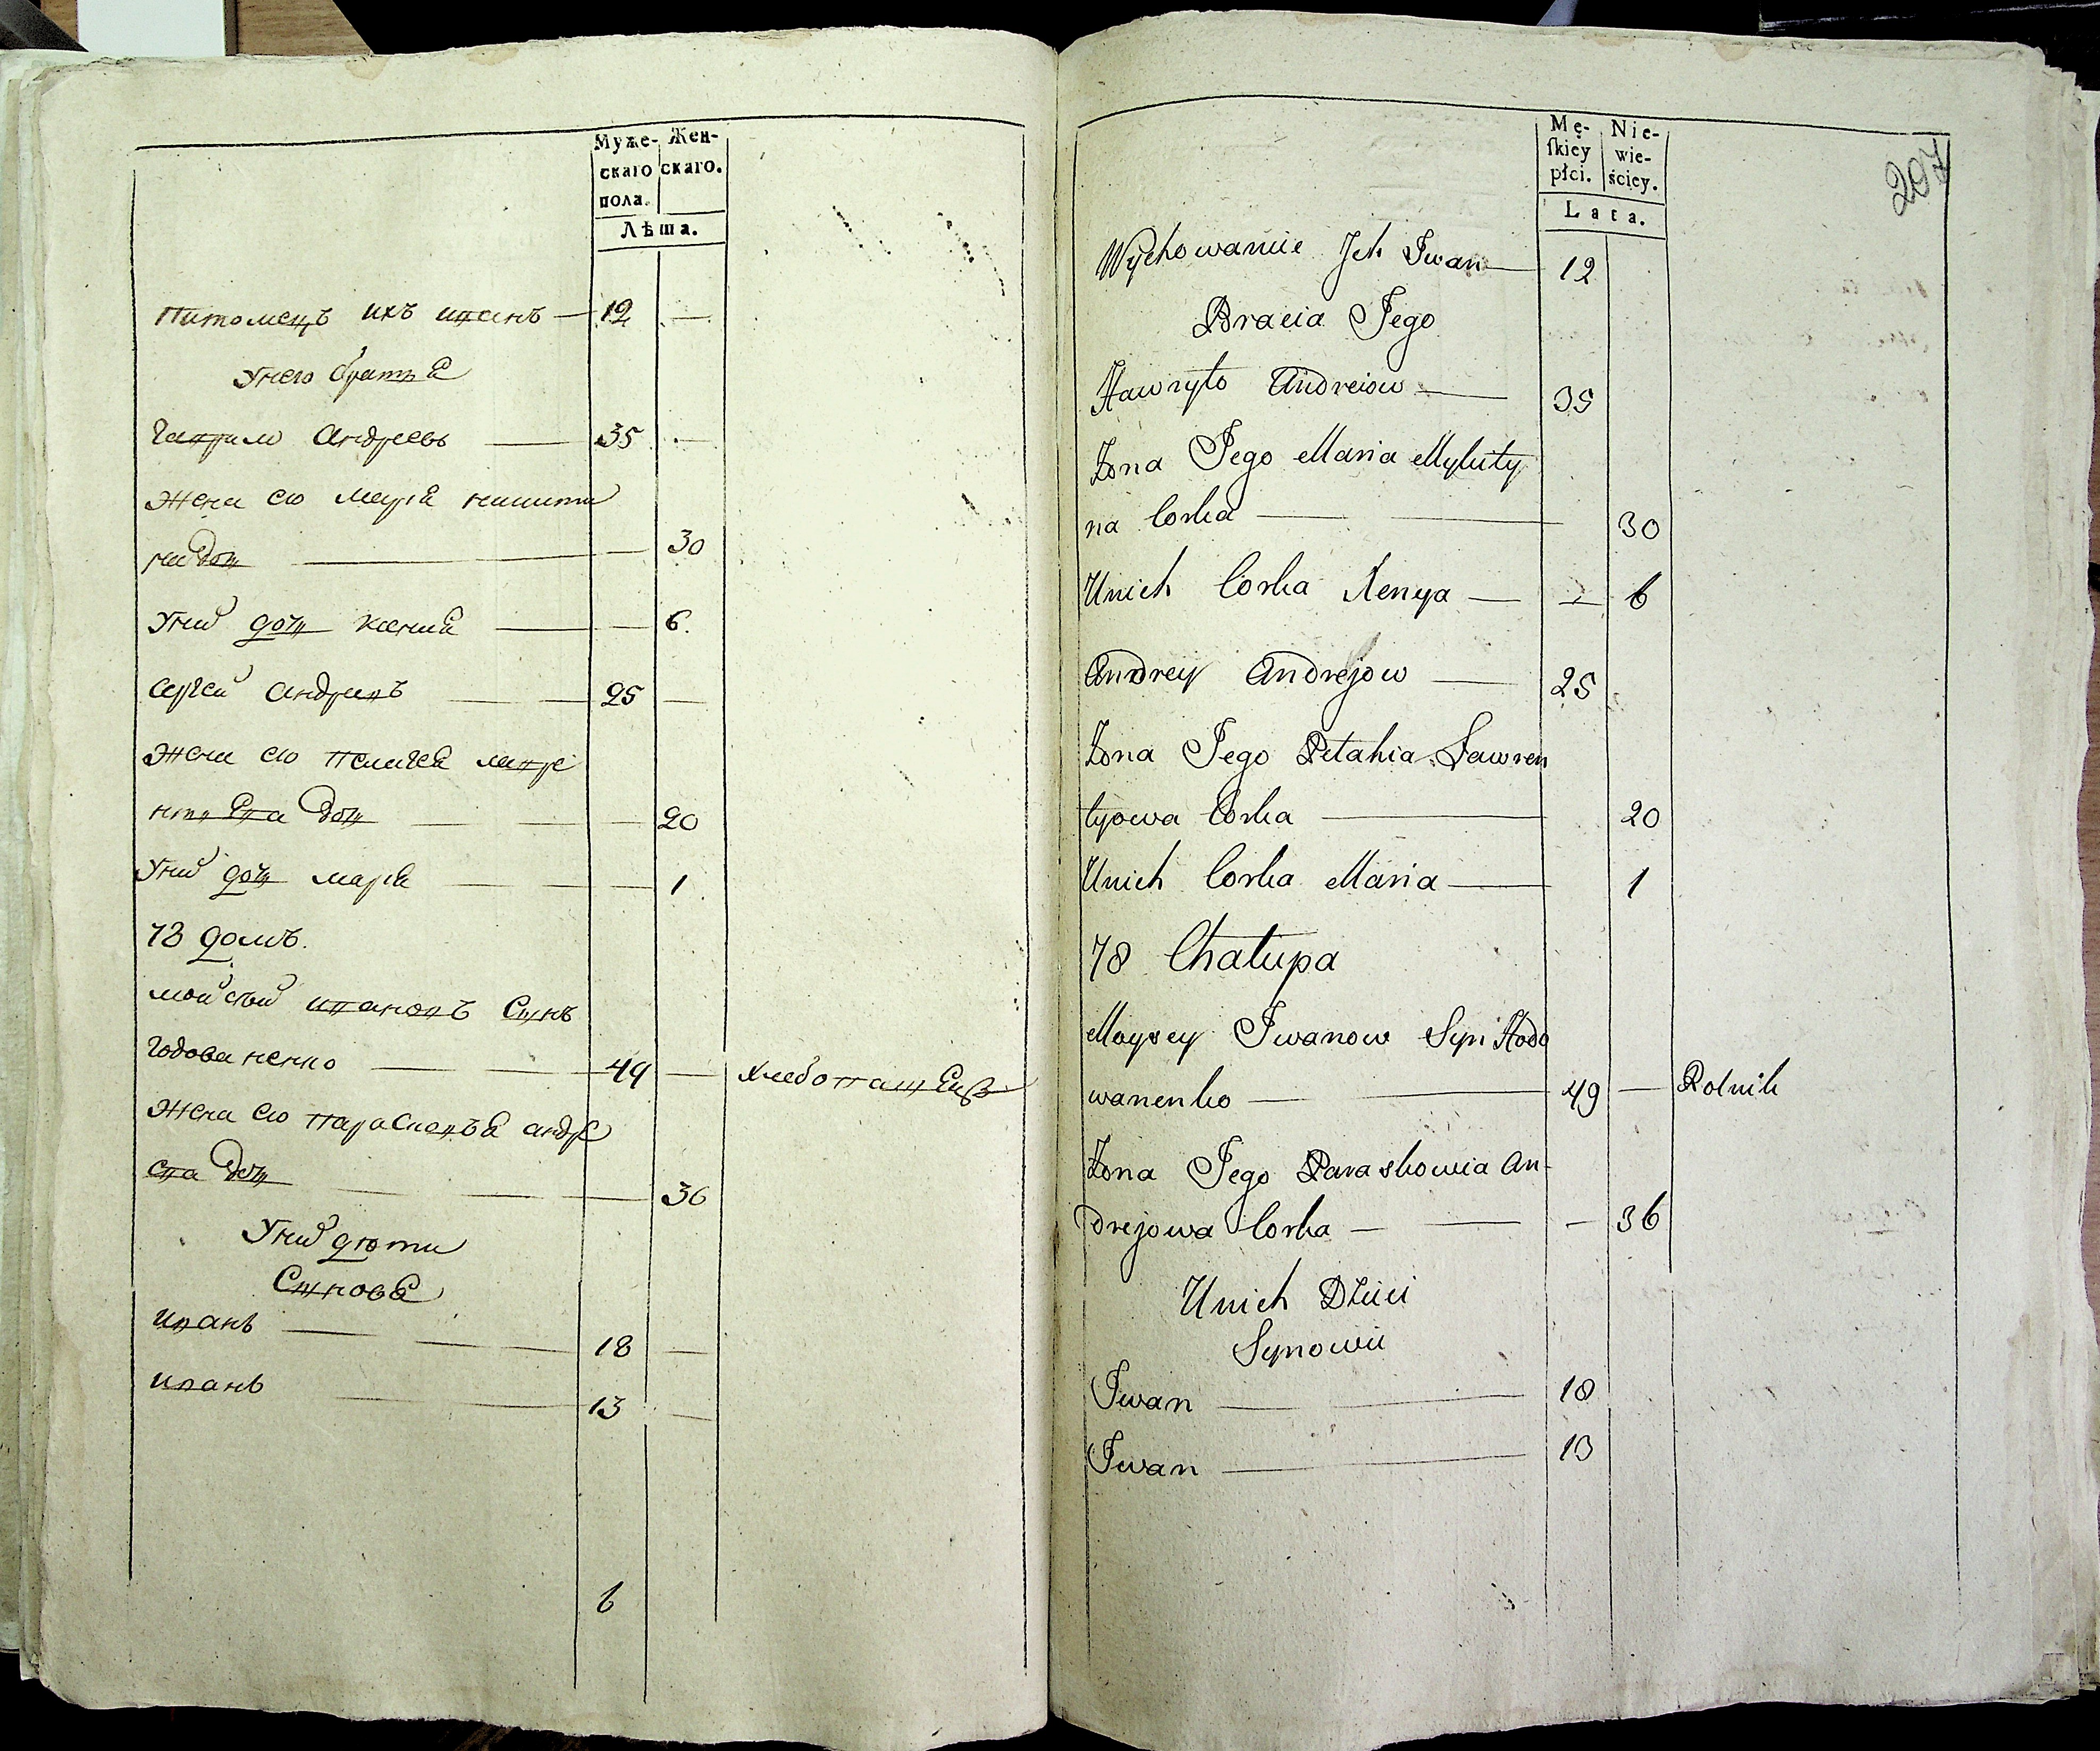 Муже- Жен-
скаго скаго.
пола.
Лѣта.
Питомецъ ихъ иванъ — 12 —
Унего братья
Гаврило Андреевъ — 35 —
Жена его Марья никити
на дочь — 30
Унихъ дочь ксенія — 6.
Сергей андреевъ — 25 —
Жена его Пелагея лавре
нтьева дочь — 20
Унихъ дочь марья — 1
78 домъ.
мойсей ивановъ Сынъ
Годованенко — 49 — хлебопашецъ
Жена его парасковья андре
ева дочь — 36
Унихъ дети
Сыновья
иванъ — 18 —
иванъ — 13 —
6
Mę- Nie-
ſkiey wie-
płci. ściey.
Lata.
207
Wychowanie Jch Jwan — 12
Bracia Jego
Hawryło Andreiow — 35
Żona Jego Maria Mykity
na Corka — 30
Unich Corka Xenya — — 6
Andrey Andrejow — 25
Żona Jego Petahia Ławren
tyowa Corka — 20
Unich Corka Maria — 1
78 Chałupa
Moysey Jwanow Syn Hodo
wanenko — 49 — Rolnik
Żona Jego Paraskowia An-
drejowa Corka — — 36
Unich Dzieci
Synowie
Jwan — 18
Jwan — 13